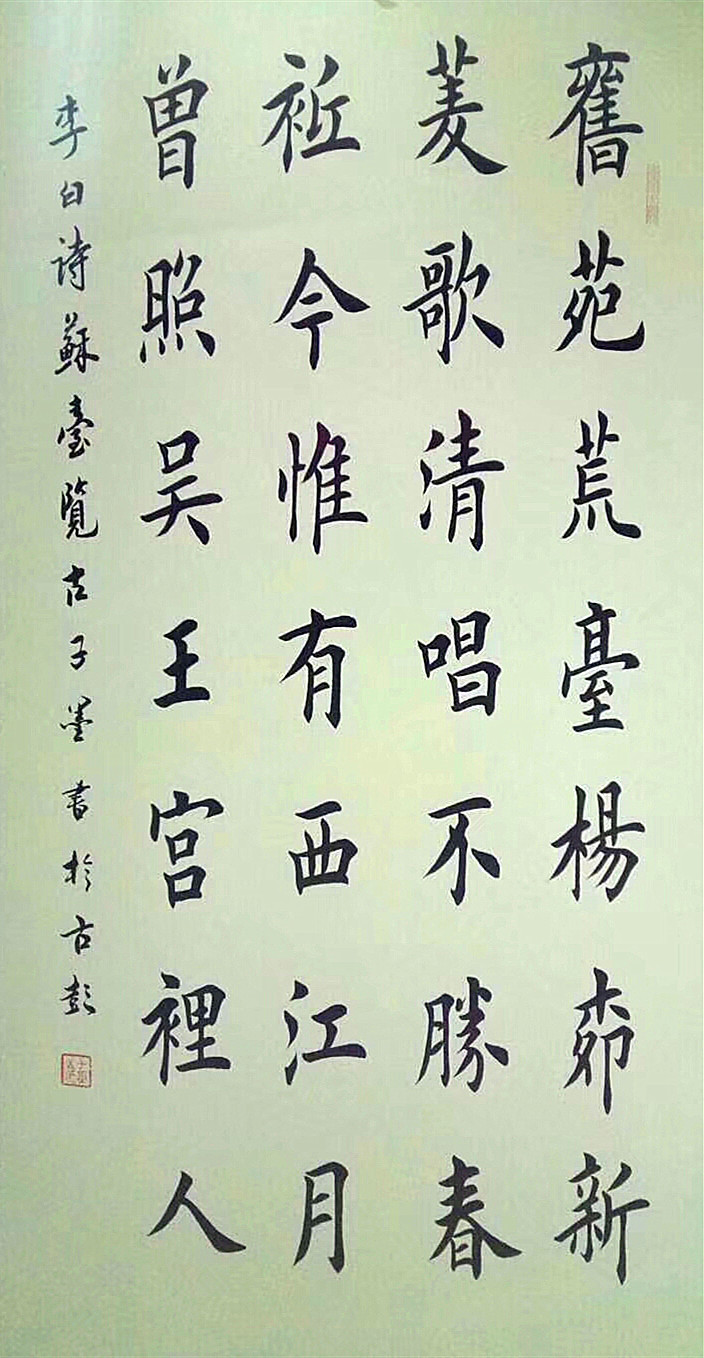 舊苑荒臺楊桺新
菱歌清唱不勝春
祗今惟有西江月
曾照吴王宫裡人
李白诗蘇臺覧古子墨书於古彭